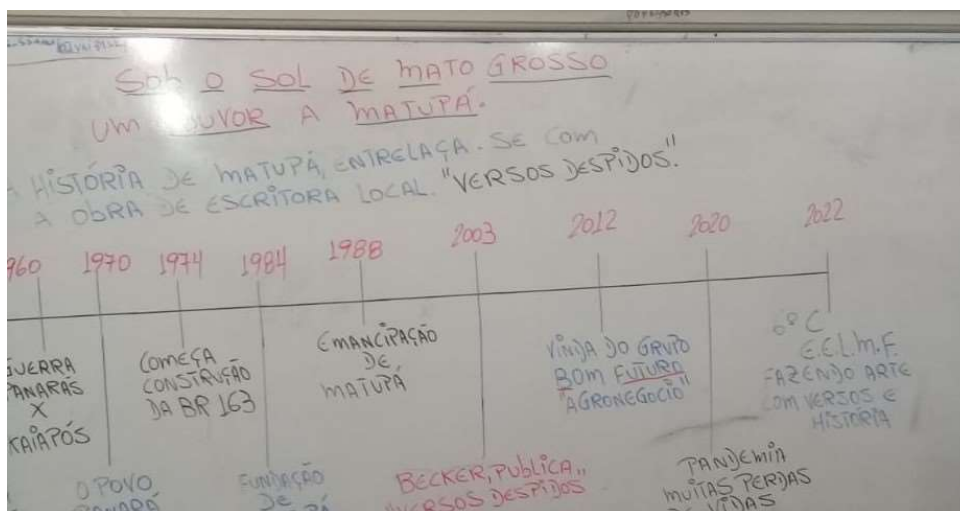 SOB O SOL DE MATO GROSSO
UM LOUVOR A MATUPÁ.
HISTÓRIA DE MATUPÁ, ENTRELAÇA-SE COM
A OBRA DE ESCRITORA LOCAL. "VERSOS DESPIDOS".
960 1970 1974 1984 1988 2003 2012 2020 2022
GUERRA
PANARÁS
X
KAIAPÓS
O POVO
PANARÁ
COMEÇA
CONSTRUÇÃO
DA BR 163
FUNDAÇÃO
DE
EMANCIPAÇÃO
DE
MATUPÁ
BECKER, PUBLICA,,
VERSOS DESPIDOS
VINDA DO GRUPO
BOM FUTURO
"AGRONEGOCIO"
PANDEMIA
MUITAS PERDAS
DE VIDAS
6º C
E.E.L.M.F.
FAZENDO ARTE
COM VERSOS E
HISTÓRIA